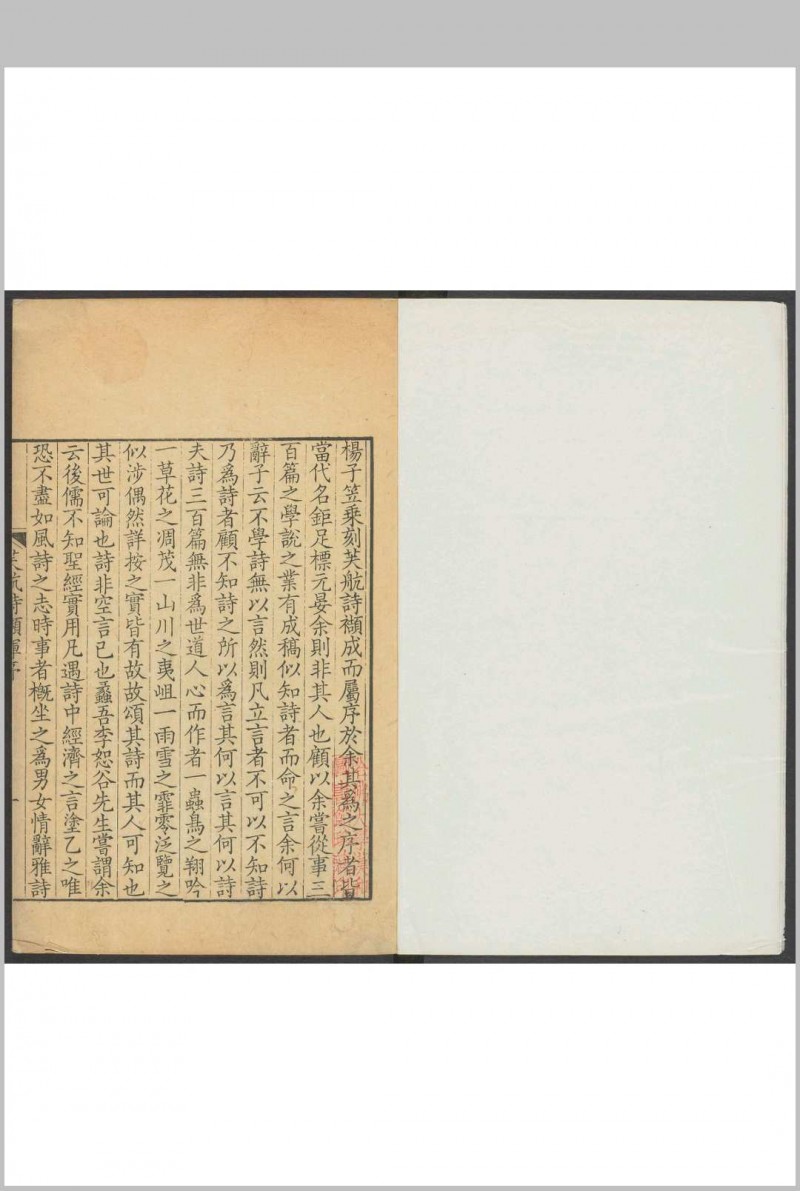 楊子笠乗刻芙航詩襭成而屬序於余其為之序者皆
當代名鉅足標元晏余則非其人也顧以余嘗從事三
百篇之學說之業有成稿似知詩者而命之言余何以
辭子云不學詩無以言然則凡立言者不可以不知詩
乃為詩者顧不知詩之所以為言其何以言其何以詩
夫詩三百篇無非為世道人心而作者一蟲鳥之翔吟
一草花之凋茂一山川之夷岨一雨雪之霏零泛覽之
似涉偶然詳按之實皆有故故頌其詩而其人可知也
其世可論也詩非空言已也蠡吾李恕谷先生嘗謂余
云後儒不知聖經實用凡遇詩中經濟之言塗乙之唯
恐不盡如風詩之志時事者概坐之為男女情辭雅詩
芙航詩襭 序 一